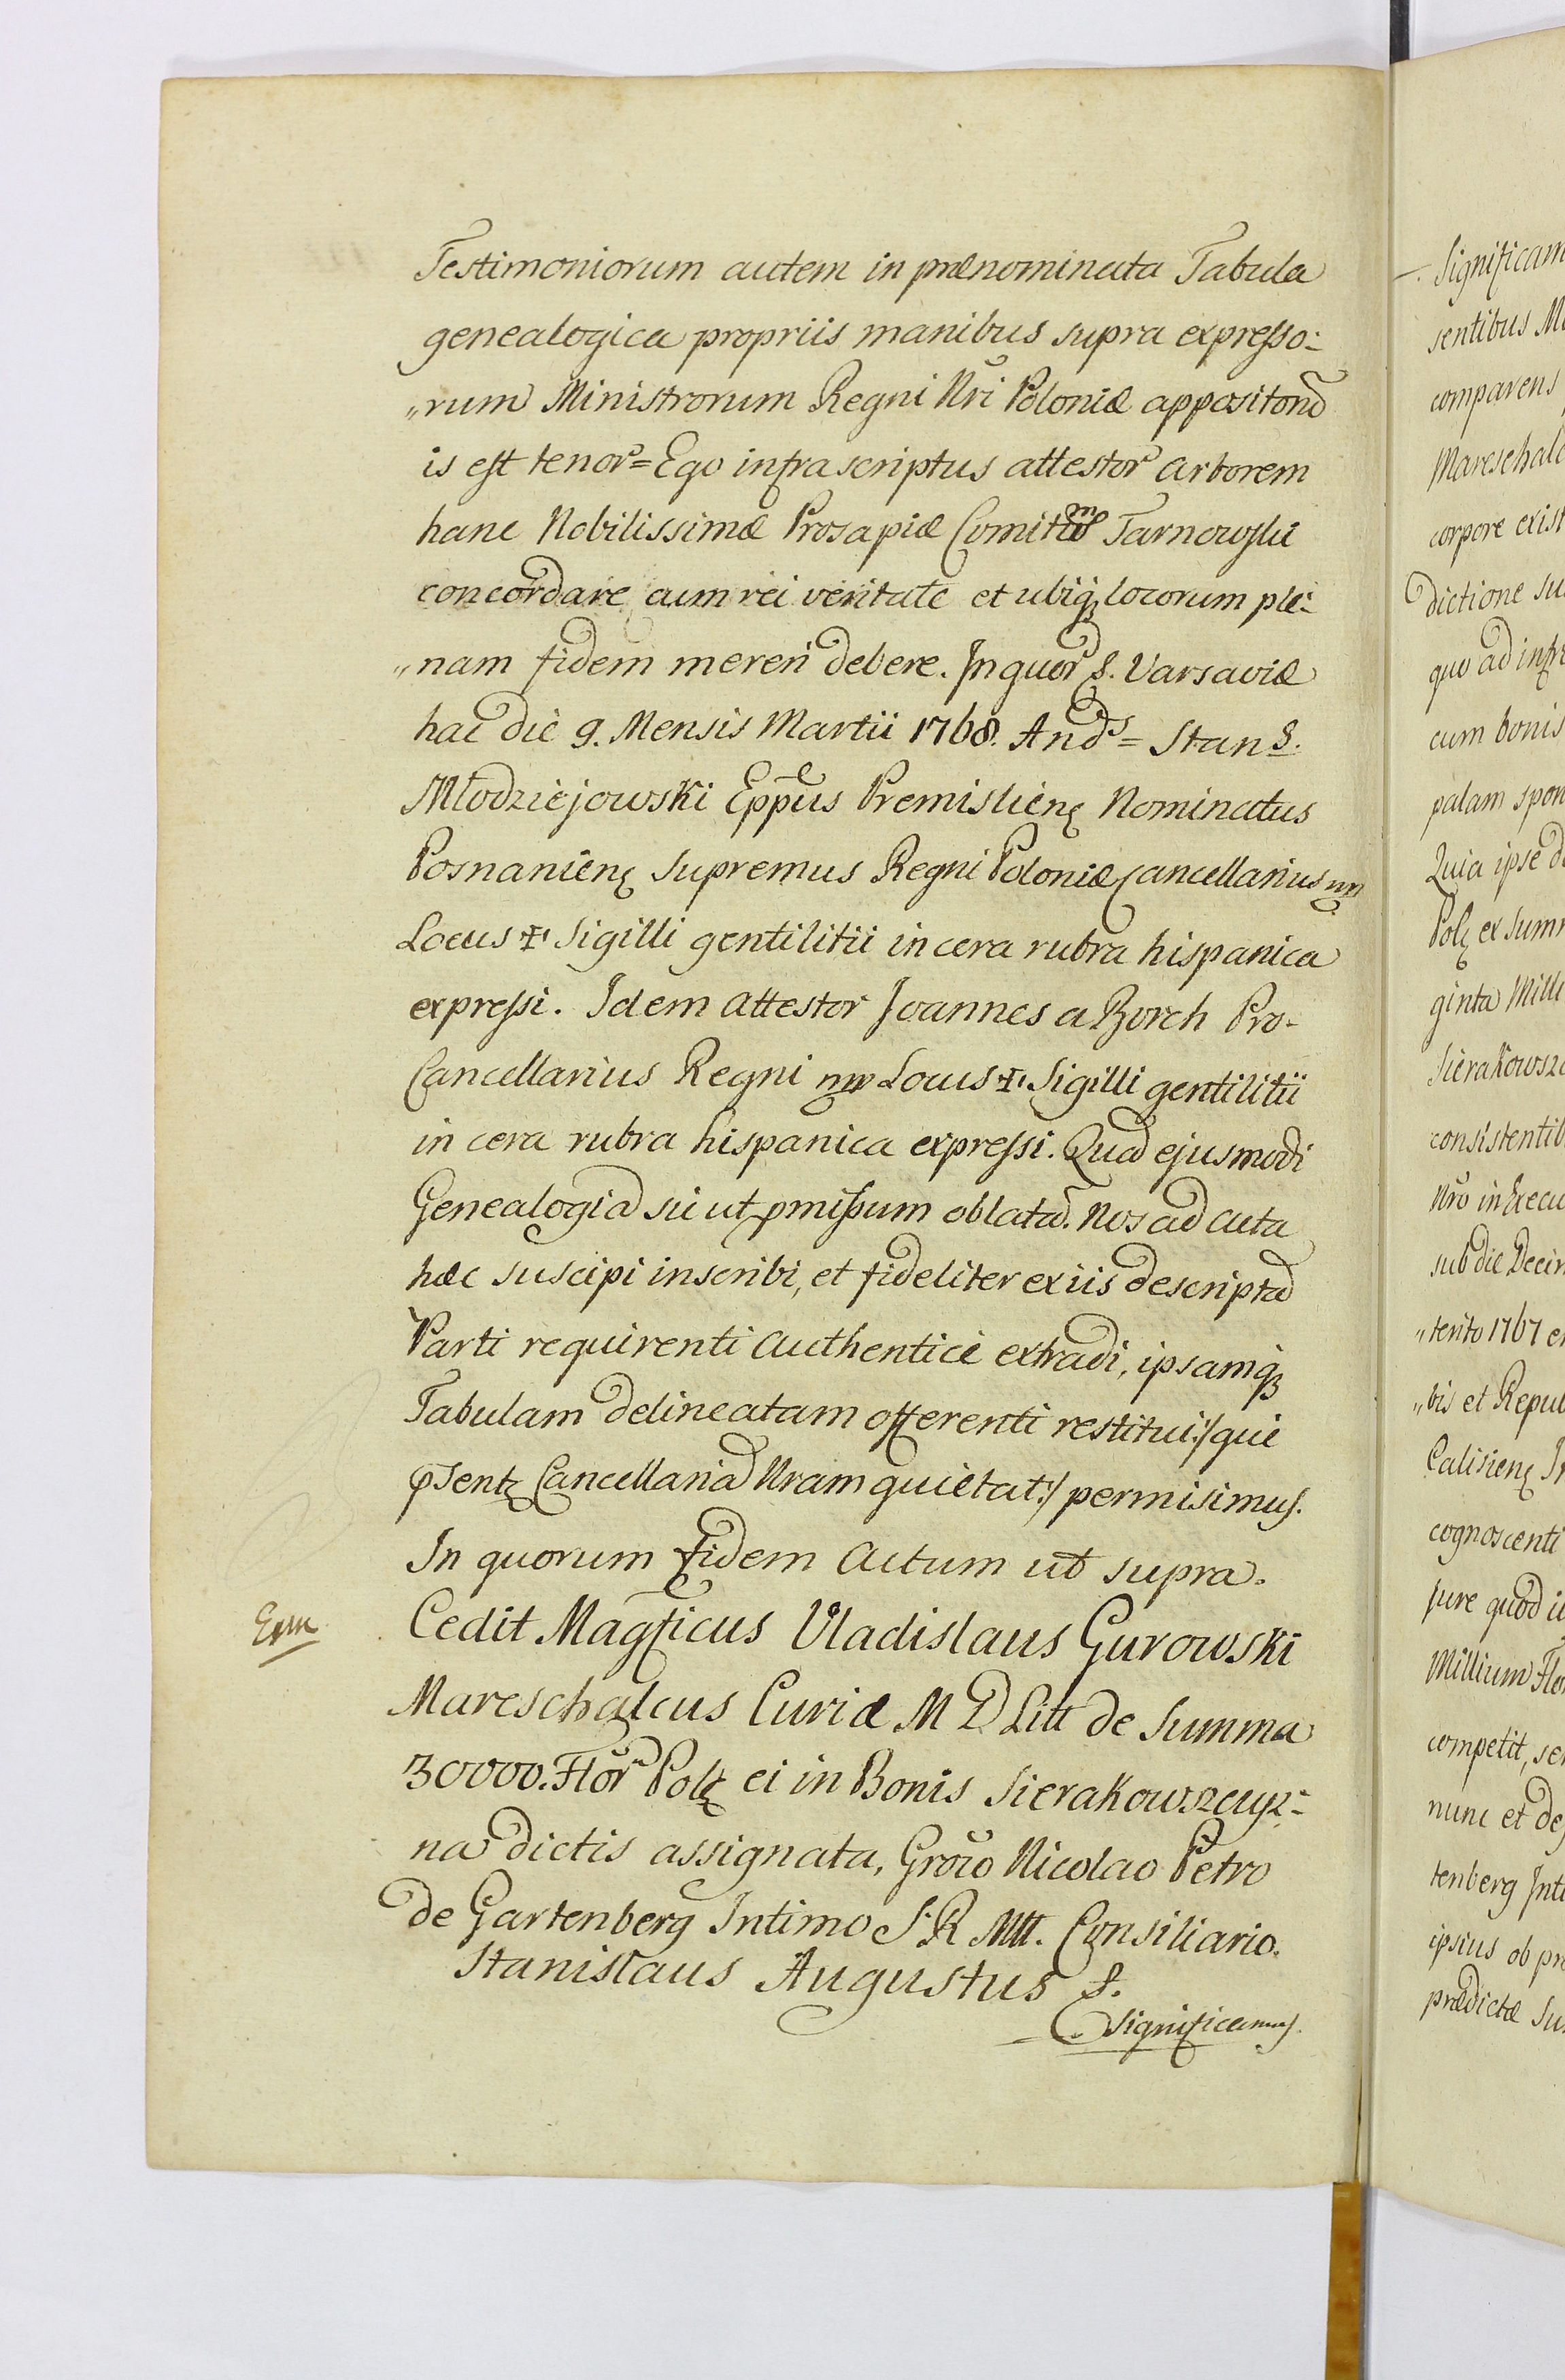 Testimoniorum autem in prænominata Tabula
genealogica propriis manibus supra expresso:
„rum Ministrorum Regni Nri Poloniæ appositorũ
is est tenor = Ego infrascriptus attestor Arborem
hanc Nobilissimæ Prosapiæ Comitum Tarnowski
concordare cum rei veritate et ubiq locorum ple:
„nam fidem mereri debere. In quor f. Varsaviæ
hac die 9. Mensis Martii 1768. And = Stan S.
Młodziejowski Eppus Premislien Nominatus
Posnanien Supremus Regni Poloniæ Cancellarius mp
Locus ✠ Sigilli gentilitii in cera rubra hispanica
expressi. Idem attestor Joannes a Borch Pro-
Cancellarius Regni mp Locus ✠ Sigilli gentilitii
in cera rubra hispanica expressi. Quad ejusmodi
Genealogiã sic ut pmissum oblatã. Nos ad acta
hæc suscipi inscribi, et fideliter ex iis descriptã
Parti requirenti authenticè extradi, ipsamq
Tabulam delineatam offerenti restitui :/ qui
psent Cancellariã Nram quietat :/ permisimus.
In quorum fidem actum ut supra.
Erm
Cedit Magficus Vladislaus Gurowski
Mareschalcus Curiæ M D Litt de Summa
30000. Flor Pol ei in Bonis Sierakowszczyz:
na dictis assignata, Groso Nicolao Petro
de Gartenberg Intimo S. R. Mtt. Consiliario.
Stanislaus Augustus f.
Significamus
Significam
sentibus M
comparens
Mareschalc
corpore exist
dictione su
quo ad infr
cum bonis
palam spon
Quia ipse d
Pol ex Summ
ginta Mille
Sierakowsz
consistentib
Nro in Execu
sub die Decim
„terito 1767 e
„bis et Repub
Calisien I
cognoscenti
jure quod i
Millium Flo
competit, se
nunc et de
tenberg Inti
ipsius ob pr
prædictæ Su